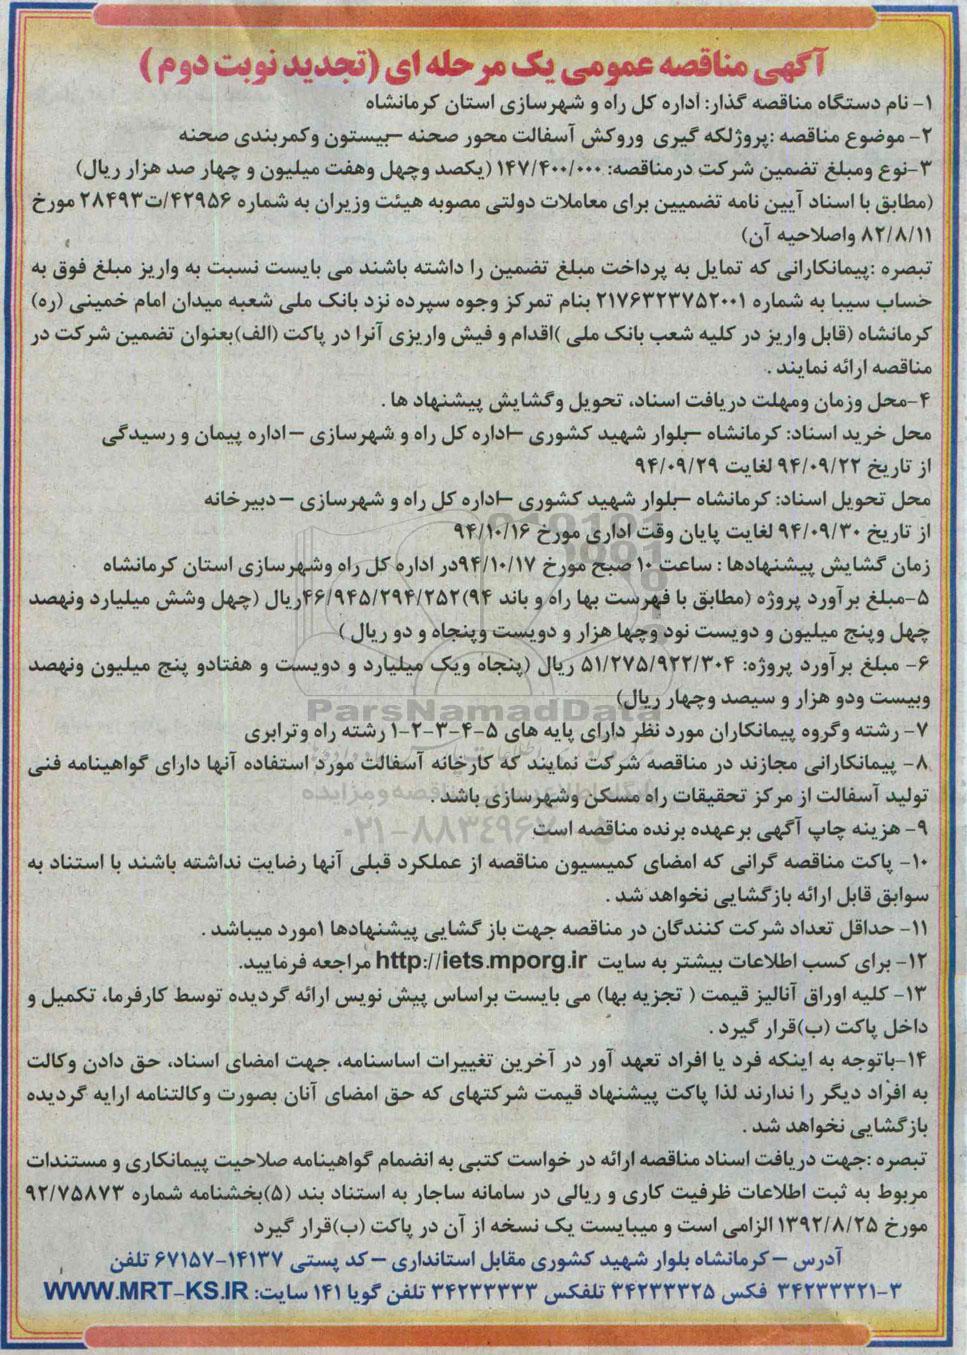 آگهی مناقصه عمومی یک مرحله ای (تجدید نوبت دوم)
۱- نام دستگاه مناقصه گذار: اداره کل راه و شهرسازی استان کرمانشاه
۲- موضوع مناقصه :پروژلکه گیری وروکش آسفالت محور صحنه –بیستون وکمربندی صحنه
۳-نوع ومبلغ تضمین شرکت درمناقصه: ۱۴۷/۴۰۰/۰۰۰ (یکصد وچهل وهفت میلیون و چهار صد هزار ریال)
(مطابق با اسناد آیین نامه تضمیین برای معاملات دولتی مصوبه هیئت وزیران به شماره ۴۲۹۵۶/ت۲۸۴۹۳ مورخ
۸۲/۸/۱۱ واصلاحیه آن)
تبصره :پیمانکارانی که تمایل به پرداخت مبلغ تضمین را داشته باشند می بایست نسبت به واریز مبلغ فوق به
حساب سیبا به شماره ۲۱۷۶۳۲۳۷۵۲۰۰۱ بنام تمرکز وجوه سپرده نزد بانک ملی شعبه میدان امام خمینی (ره)
کرمانشاه (قابل واریز در کلیه شعب بانک ملی )اقدام و فیش واریزی آنرا در پاکت (الف)بعنوان تضمین شرکت در
مناقصه ارائه نمایند .
۴-محل وزمان ومهلت دریافت اسناد، تحویل وگشایش پیشنهاد ها .
محل خرید اسناد: کرمانشاه –بلوار شهید کشوری –اداره کل راه و شهرسازی –اداره پیمان و رسیدگی
از تاریخ ۹۴/۰۹/۲۲ لغایت ۹۴/۰۹/۲۹
محل تحویل اسناد: کرمانشاه –بلوار شهید کشوری –اداره کل راه و شهرسازی – دبیرخانه
از تاریخ ۹۴/۰۹/۳۰ لغایت پایان وقت اداری مورخ ۹۴/۱۰/۱۶
زمان گشایش پیشنهادها : ساعت ۱۰ صبح مورخ ۹۴/۱۰/۱۷در اداره کل راه وشهرسازی استان کرمانشاه
۵-مبلغ برآورد پروژه (مطابق با فهرست بها راه و باند ۹۴)۴۶/۹۴۵/۲۹۴/۲۵۲ریال (چهل وشش میلیارد ونهصد
چهل وپنج میلیون و دویست نود وچها هزار و دویست وپنجاه و دو ریال )
۶- مبلغ برآورد پروژه: ۵۱/۲۷۵/۹۲۲/۳۰۴ ریال (پنجاه ویک میلیارد و دویست و هفتادو پنج میلیون ونهصد
وبیست ودو هزار و سیصد وچهار ریال)
ParsNamadData
۷- رشته وگروه پیمانکاران مورد نظر دارای پایه های ۵-۴-۳-۲-۱ رشته راه وترابری
۸- پیمانکارانی مجازند در مناقصه شرکت نمایند که کارخانه آسفالت مورد استفاده آنها دارای گواهینامه فنی
تولید آسفالت از مرکز تحقیقات راه مسکن وشهرسازی باشد .
۹- هزینه چاپ آگهی برعهده برنده مناقصه است
۱۰- پاکت مناقصه گرانی که امضای کمیسیون مناقصه از عملکرد قبلی آنها رضایت نداشته باشند با استناد به
سوابق قابل ارائه بازگشایی نخواهد شد .
۱۱- حداقل تعداد شرکت کنندگان در مناقصه جهت باز گشایی پیشنهادها ۱مورد میباشد .
۱۲- برای کسب اطلاعات بیشتر به سایت http://iets.mporg.ir مراجعه فرمایید.
۱۳- کلیه اوراق آنالیز قیمت ( تجزیه بها) می بایست براساس پیش نویس ارائه گردیده توسط کارفرما، تکمیل و
داخل پاکت (ب)قرار گیرد .
۱۴-باتوجه به اینکه فرد یا افراد تعهد آور در آخرین تغییرات اساسنامه، جهت امضای اسناد، حق دادن وکالت
به افراد دیگر را ندارند لذا پاکت پیشنهاد قیمت شرکتهای که حق امضای آنان بصورت وکالتنامه ارایه گردیده
بازگشایی نخواهد شد .
تبصره :جهت دریافت اسناد مناقصه ارائه در خواست کتبی به انضمام گواهینامه صلاحیت پیمانکاری و مستندات
مربوط به ثبت اطلاعات ظرفیت کاری و ریالی در سامانه ساجار به استناد بند (۵)بخشنامه شماره ۹۲/۷۵۸۷۳
مورخ ۱۳۹۲/۸/۲۵ الزامی است و میبایست یک نسخه از آن در پاکت (ب)قرار گیرد
آدرس – کرمانشاه بلوار شهید کشوری مقابل استانداری – کد پستی ۱۴۱۳۷-۶۷۱۵۷ تلفن
۳-۳۴۲۳۳۳۲۱ فکس ۳۴۲۳۳۳۲۵ تلفکس ۳۴۲۳۳۳۳۳ تلفن گویا ۱۴۱ سایت: WWW.MRT-KS.IR